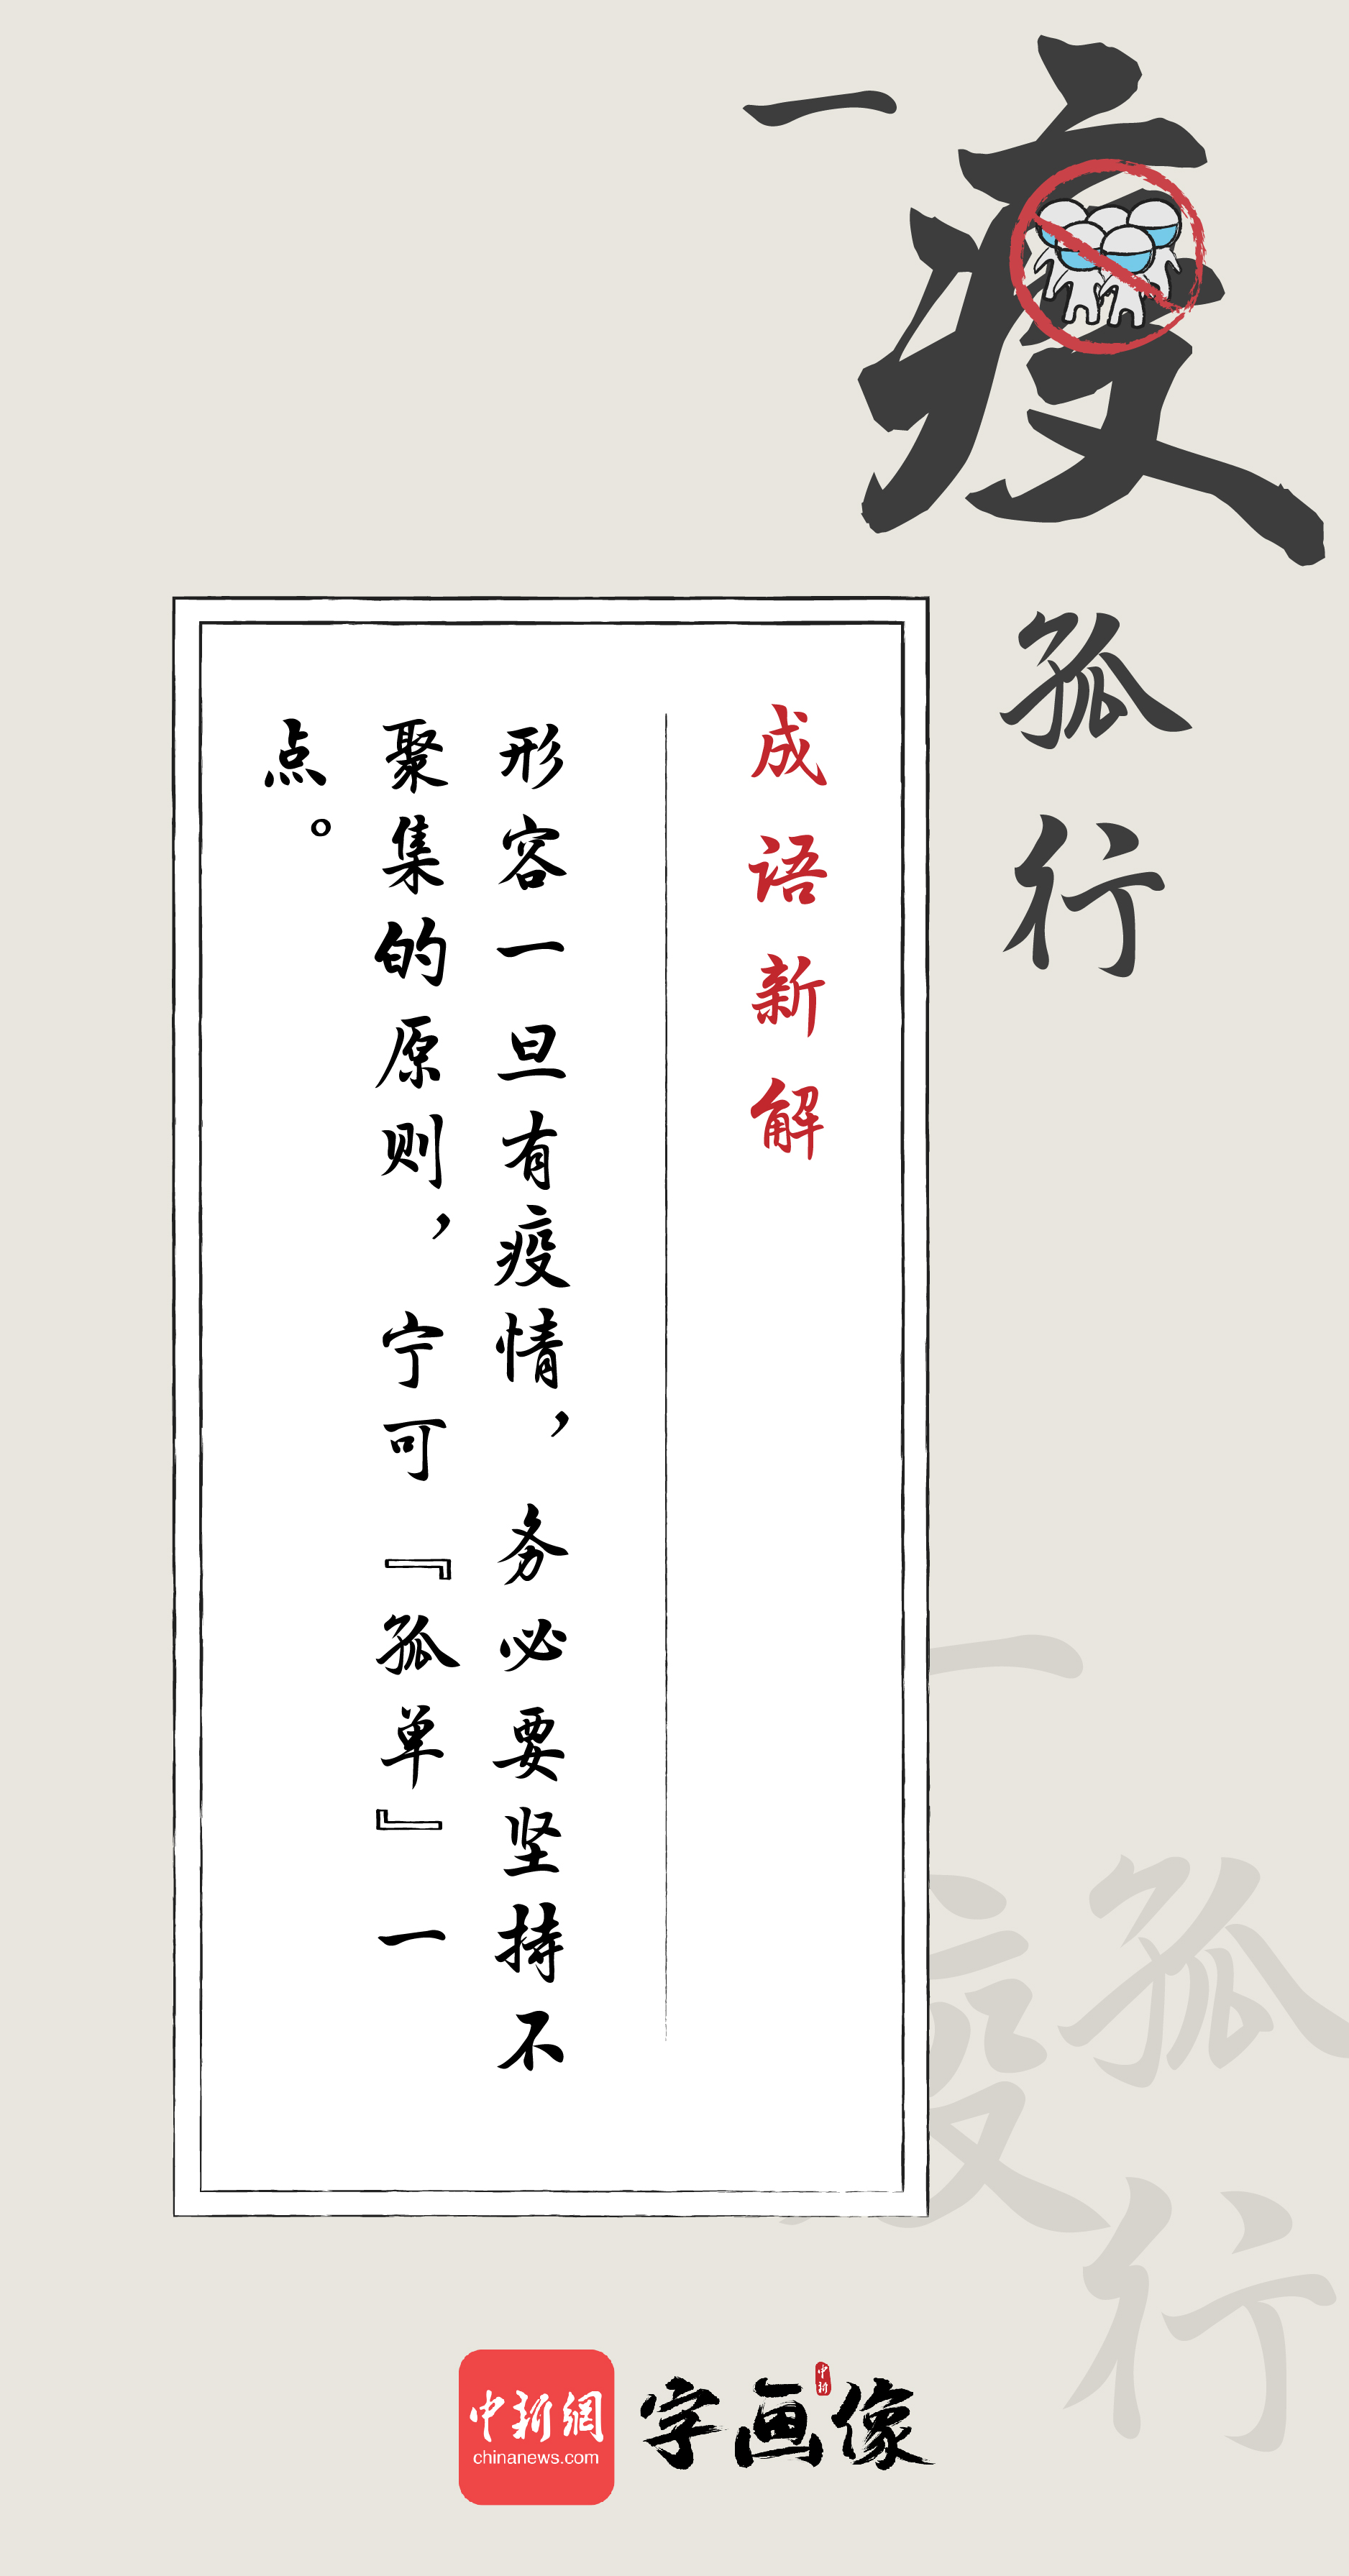 一疫孤行
成语新解
形容一旦有疫情，务必要坚持不
聚集的原则，宁可『孤单』一
点。
一疫孤行
中新網
chinanews.com
字画像
中新